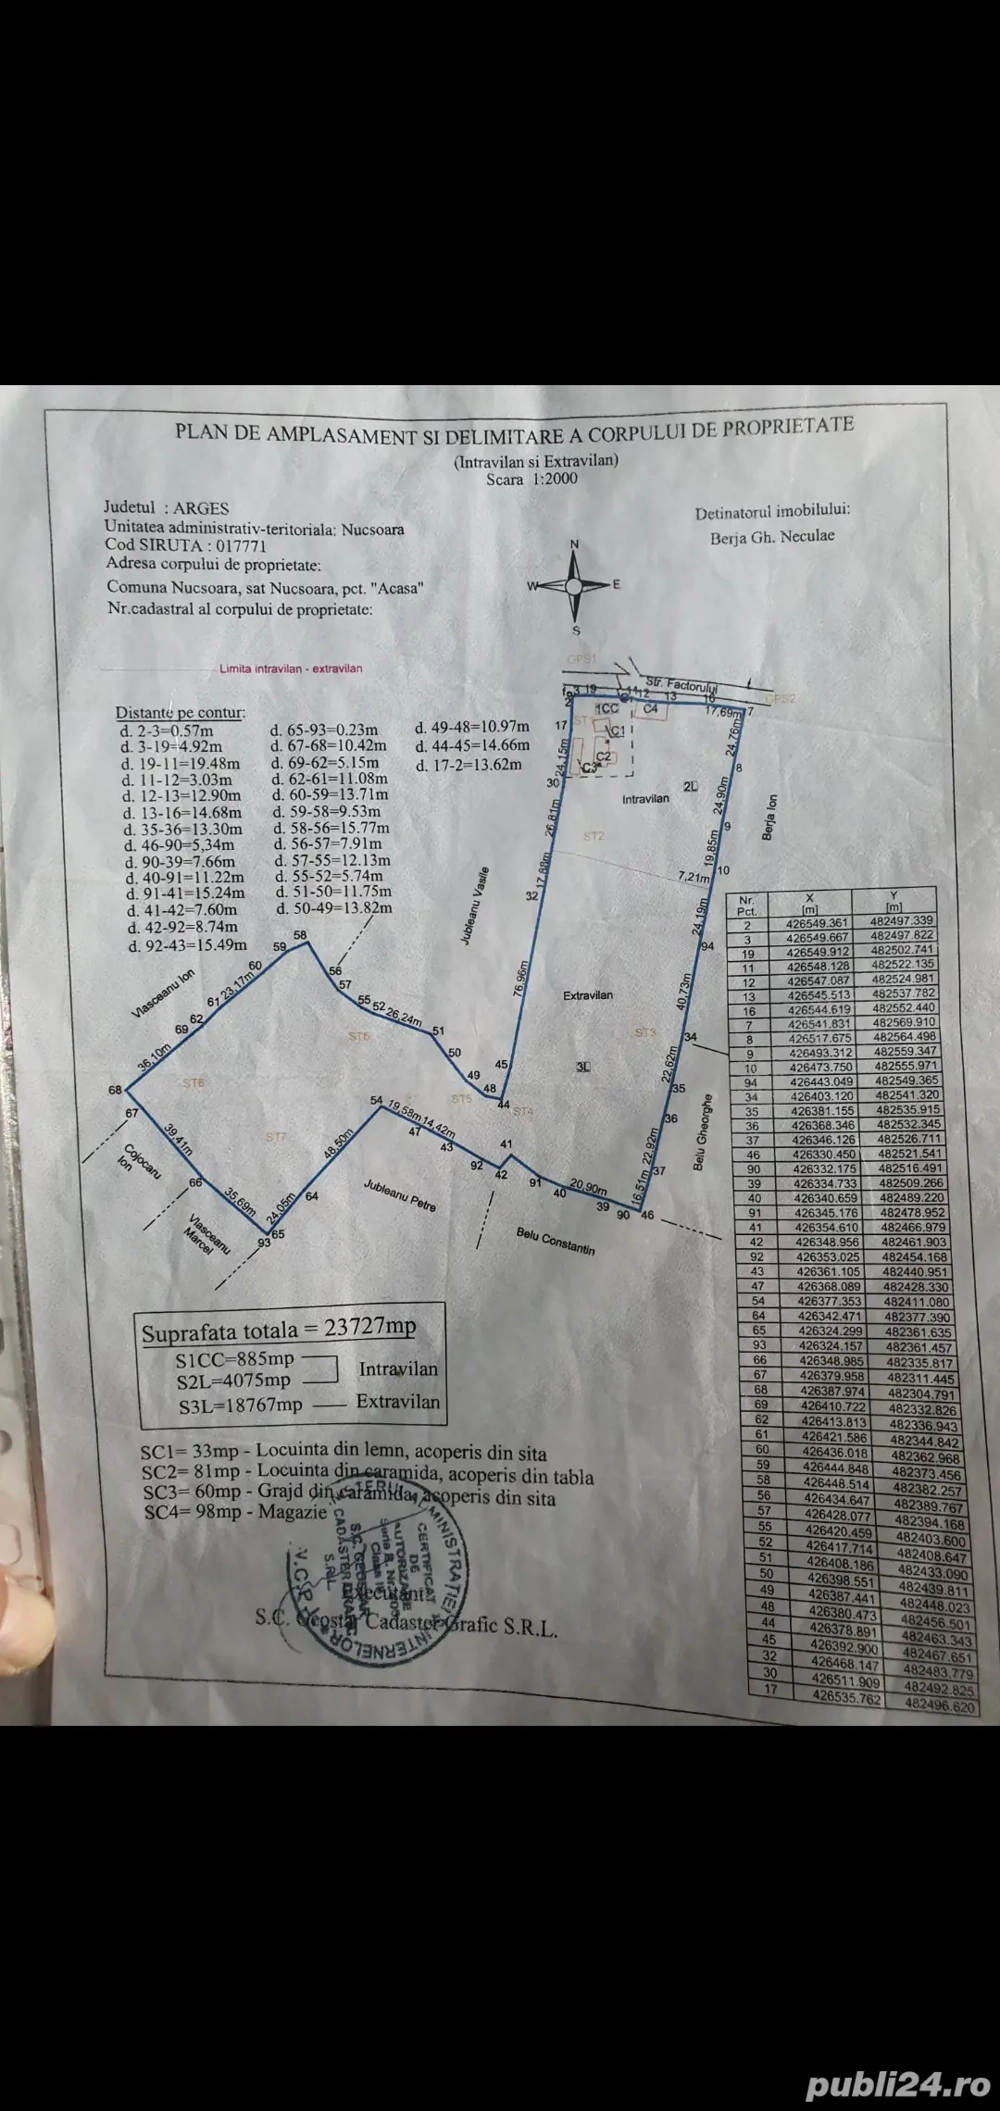 PLAN DE AMPLASAMENT SI DELIMITARE A CORPULUI DE PROPRIETATE
(Intravilan si Extravilan)
Scara 1:2000
Judetul : ARGES
Unitatea administrativ-teritoriala: Nucsoara
Cod SIRUTA : 017771
Adresa corpului de proprietate:
Comuna Nucsoara, sat Nucsoara, pct. "Acasa"
Nr.cadastral al corpului de proprietate:
Detinatorul imobilului:
Berja Gh. Neculae
N
W E
S
Limita intravilan - extravilan
Distante pe contur:
d. 2-3=0.57m
d. 3-19=4.92m
d. 19-11=19.48m
d. 11-12=3.03m
d. 12-13=12.90m
d. 13-16=14.68m
d. 35-36=13.30m
d. 46-90=5,34m
d. 90-39=7.66m
d. 40-91=11.22m
d. 91-41=15.24m
d. 41-42=7.60m
d. 42-92=8.74m
d. 92-43=15.49m
d. 65-93=0.23m
d. 67-68=10.42m
d. 69-62=5.15m
d. 62-61=11.08m
d. 60-59=13.71m
d. 59-58=9.53m
d. 58-56=15.77m
d. 56-57=7.91m
d. 57-55=12.13m
d. 55-52=5.74m
d. 51-50=11.75m
d. 50-49=13.82m
d. 49-48=10.97m
d. 44-45=14.66m
d. 17-2=13.62m
GPS1
Str. Factorului
GPS2
2 3 19 11 12 13 16 7
1CC
C4
17,69m
17
C1
C2
C3
24,15m
24,76m
8
30
Intravilan
2L
24,90m
Berja Ion
26,81m
ST2
9
19,85m
17,88m
7,21m
10
32
24,19m
Jubleanu Vasile
94
76,96m
Extravilan
40,73m
ST3
34
3L
22,62m
35
36
Belu Gheorghe
22,92m
37
16,51m
46
90
39
20,90m
40
91
41
42
92
43
14,42m
47
19,58m
54
45
44
ST4
48
ST5
49
50
51
26,24m
52
55
57
56
58
59
60
23,17m
61
62
69
36,10m
68
67
ST6
ST8
ST7
39,41m
66
35,69m
24,05m
64
48,50m
65
93
Vlasceanu Ion
Cojocaru
Ion
Vlasceanu
Marcel
Jubleanu Petre
Belu Constantin
Nr. Pct. X [m] Y [m]
2 426549.361 482497.339
3 426549.667 482497.822
19 426549.912 482502.741
11 426548.128 482522.135
12 426547.087 482524.981
13 426545.513 482537.782
16 426544.619 482552.440
7 426541.831 482569.910
8 426517.675 482564.498
9 426493.312 482559.347
10 426473.750 482555.971
94 426443.049 482549.365
34 426403.120 482541.320
35 426381.155 482535.915
36 426368.346 482532.345
37 426346.126 482526.711
46 426330.450 482521.541
90 426332.175 482516.491
39 426334.733 482509.266
40 426340.659 482489.220
91 426345.176 482478.952
41 426354.610 482466.979
42 426348.956 482461.903
92 426353.025 482454.168
43 426361.105 482440.951
47 426368.089 482428.330
54 426377.353 482411.080
64 426342.471 482377.390
65 426324.299 482361.635
93 426324.157 482361.457
66 426348.985 482335.817
67 426379.958 482311.445
68 426387.974 482304.791
69 426410.722 482332.826
62 426413.813 482336.943
61 426421.586 482344.842
60 426436.018 482362.968
59 426444.848 482373.456
58 426448.514 482382.257
56 426434.647 482389.767
57 426428.077 482394.168
55 426420.459 482403.600
52 426417.714 482408.647
51 426408.186 482433.090
50 426398.551 482439.811
49 426387.441 482448.023
48 426380.473 482456.501
44 426378.891 482463.343
45 426392.900 482467.651
32 426468.147 482483.779
30 426511.909 482492.825
17 426535.762 482496.620
Suprafata totala = 23727mp
S1CC=885mp
S2L=4075mp
Intravilan
S3L=18767mp
Extravilan
SC1= 33mp - Locuinta din lemn, acoperis din sita
SC2= 81mp - Locuinta din caramida, acoperis din tabla
SC3= 60mp - Grajd din caramida, acoperis din sita
SC4= 98mp - Magazie
CERTIFICAT
DE
AUTORIZARE
Executant:
S.C. Geostar Cadaster Grafic S.R.L.
publi24.ro